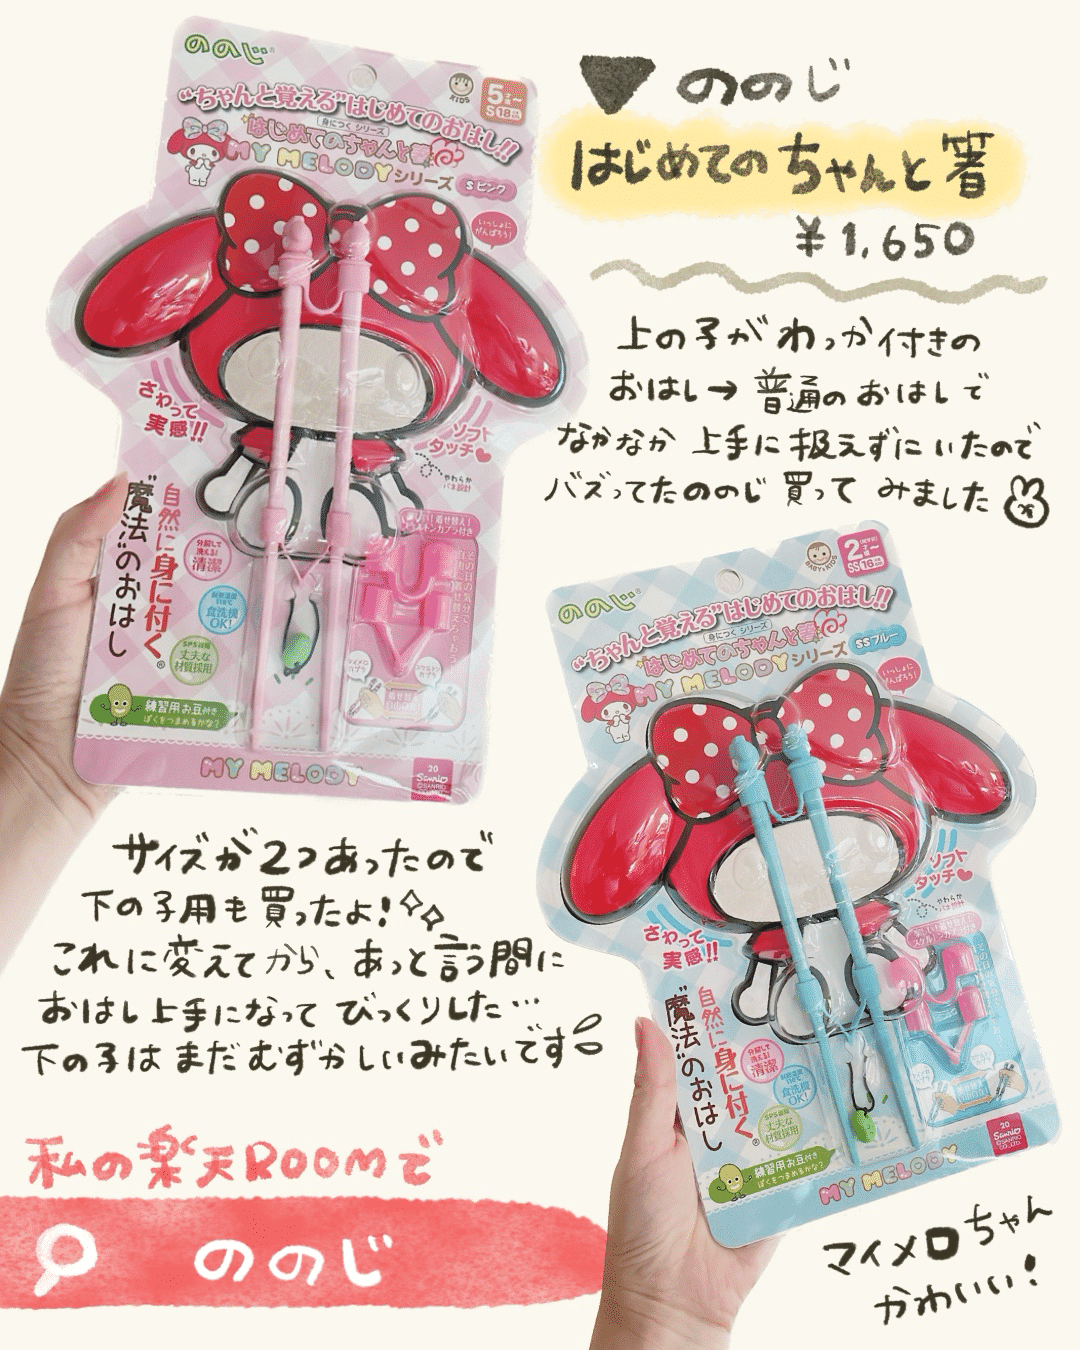 ▼ののじ
はじめてのちゃんと箸
¥1,650
上の子がわっか付きの
おはし→普通のおはしで
なかなか上手に扱えずにいたので
バズってたののじ買ってみました
ののじ®
KIDS
5才~
S 18cm
"ちゃんと覚える"はじめてのおはし!!
身につくシリーズ
はじめてのちゃんと箸
MY MELODYシリーズ
Sピンク
いっしょに
がんばろう!
さわって
実感!!
ソフト
タッチ
やわらか
バネ設計
自然に身に付く®
"魔法"のおはし
分解して
洗える!
清潔
食洗機
OK!
SPS樹脂
丈夫な
材質採用
練習用お豆付き
ぼくをつまめるかな?
MY MELODY
20
Sanrio
©SANRIO
サイズが2つあったので
下の子用も買ったよ!
これに変えてから、あっと言う間に
おはし上手になってびっくりした…
下の子はまだむずかしいみたいです
ののじ®
BABY&KIDS
2才~
SS 16cm
"ちゃんと覚える"はじめてのおはし!!
身につくシリーズ
はじめてのちゃんと箸
MY MELODYシリーズ
SSブルー
いっしょに
がんばろう!
さわって
実感!!
ソフト
タッチ
やわらか
バネ設計
自然に身に付く®
"魔法"のおはし
分解して
洗える!
清潔
食洗機
OK!
SPS樹脂
丈夫な
材質採用
練習用お豆付き
ぼくをつまめるかな?
MY MELODY
20
Sanrio
©SANRIO
CO.,LTD.
私の楽天ROOMで
ののじ
マイメロちゃん
かわいい!